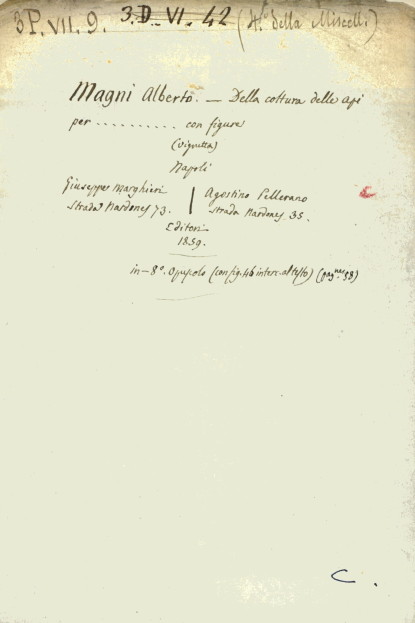 3P. VII. 9. 3. D. VI. 42 (4.º della Miscell:)
Magni Alberto. — Della coltura delle api
per .......... con figure
(vignetta)
Napoli
Giuseppe Marghieri | Agostino Pellerano
Strada Nardones 73. | Strada Nardones 35.
Editori
1859.
in-8º. Opuscolo (con fig. 46 interc. al testo) (pagine 58)
C.